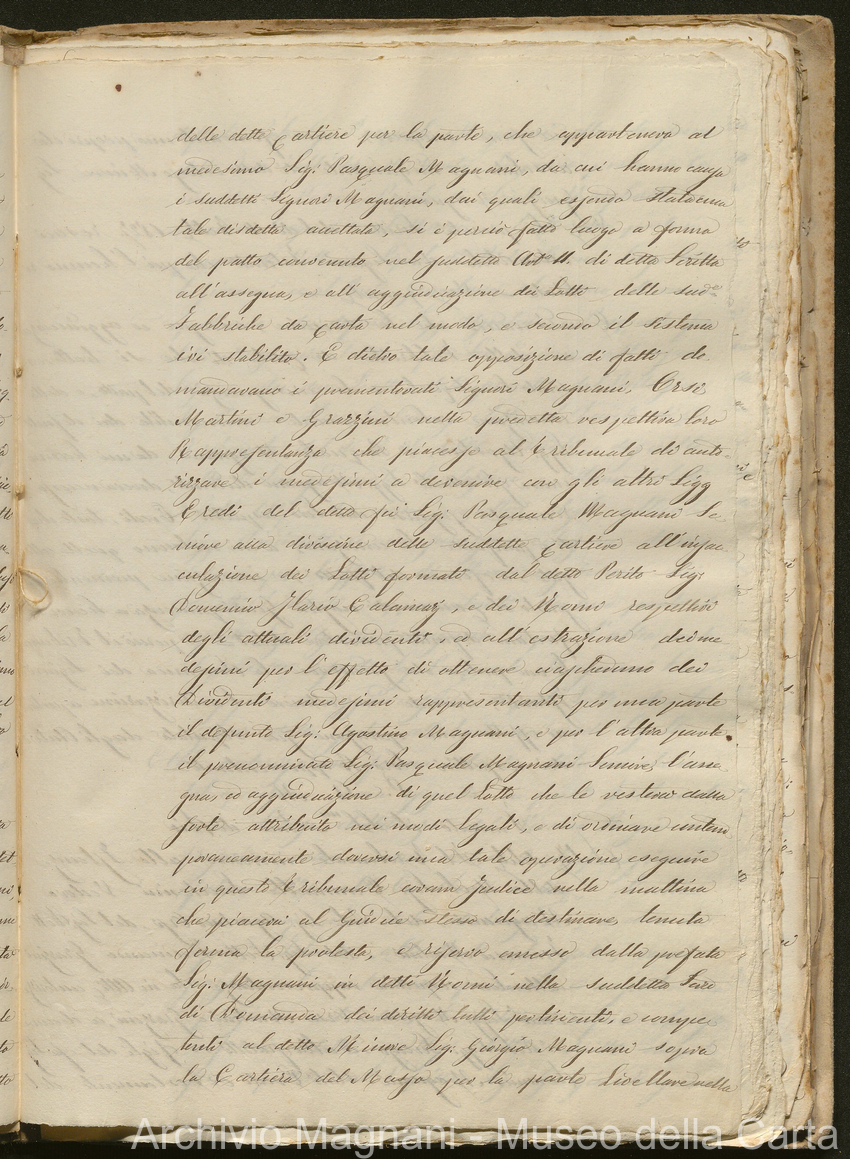 delle dette Cartiere per la parte, che apparteneva al
medesimo Sig: Pasquale Magnani, da cui hanno causa
i suddetti Signori Magnani, dai quali essendo stata
tale disdetta accettata, si è perciò fatto luogo a forma
del patto convenuto nel suddetto Art. 11. di detta Scritta
all'assegna, e all'aggiudicazione dei Lotti delle sudᵉ
Fabbriche da Carta nel modo, e secondo il sistema
ivi stabilito. E dietro tale opposizione di fatti do
mandavano i prementovati Signori Magnani, Orsi,
Martini e Grazzini nella predetta respettiva loro
Rappresentanza che piacesse al Tribunale di auto
rizzare i medesimi a devenire con gli altri Sigg
Eredi del detto fù Sig: Pasquale Magnani Se
niore alla divisione delle suddette Cartiere all'imbor
culazione dei Lotti formati dal detto Perito Sig:
Domenico Ilario Calamaj, e dei Nomi respettivi
degli attuali dividenti, ed all'estrazione dei me
desimi per l'effetto di ottenere ciascheduno dei
Dividenti medesimi rappresentanti per una parte
il defunto Sig: Agostino Magnani, e per l'altra parte
il prenominato Sig: Pasquale Magnani Seniore, l'asse
gna, ed aggiudicazione di quel Lotto che le resterà dalla
sorte attribuito nei modi legali, e di ordinare contem
poraneamente doversi una tale operazione eseguire
in questo Tribunale coram Judice nella mattina
che piacerà al Giudice stesso di destinare, tenuta
ferma la protesta, e riservo emesso dalla prefata
Sig: Magnani in detti Nomi nella suddetta
di Domanda dei diritti tutti pertinenti, e compe
tenti al detto Minore Sig: Giorgio Magnani sopra
la Cartiera del Masso per la parte Livellare nella
Archivio Magnani - Museo della Carta